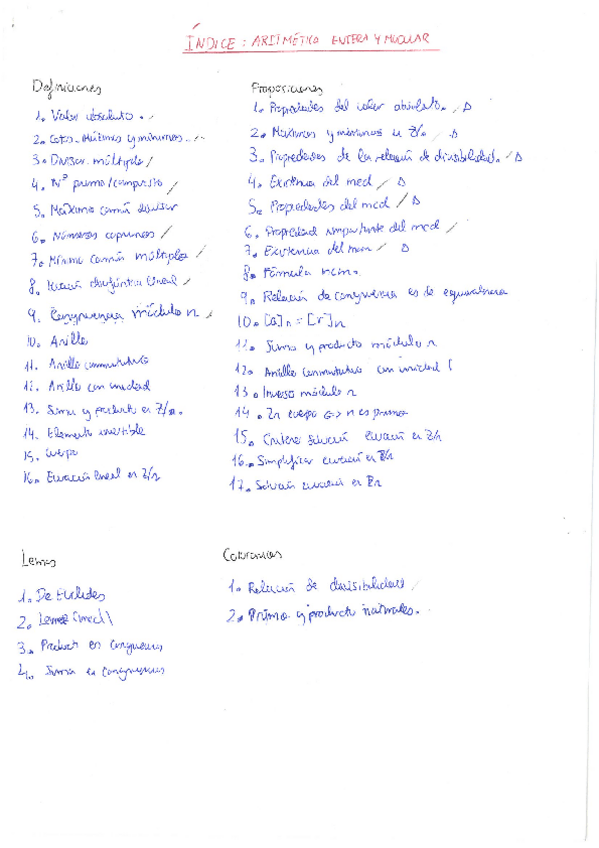 ÍNDICE: ARITMÉTICO ENTERA Y MODULAR
Definiciones
1. Valor absoluto. /
2. Cotas. Máximos y mínimos. /
3. Divisor. múltiplo /
4. Nº primo/compuesto /
5. Máximo común divisor
6. Números coprimos /
7. Mínimo común múltiplo /
8. Ecuación diofántica lineal /
9. Congruencia módulo n /
10. Anillo
11. Anillo conmutativo
12. Anillo con unidad
13. Suma y producto en Z/n.
14. Elemento invertible
15. Cuerpo
16. Ecuación lineal en Z/n
Proposiciones
1. Propiedades del valor absoluto. / Δ
2. Máximos y mínimos en Z/. / Δ
3. Propiedades de la relación de divisibilidad. / Δ
4. Existencia del mcd / Δ
5. Propiedades del mcd / Δ
6. Propiedad importante del mcd /
7. Existencia del mcm / Δ
8. Fórmula mcm.
9. Relación de congruencia es de equivalencia
10. [a]n = [r]n
11. Suma y producto módulo n
12. Anillo conmutativo con unidad
13. Inverso módulo n
14. Zn cuerpo <=> n es primo
15. Criterio solución ecuación en Z/n
16. Simplificar ecuación en Z/n
17. Solución ecuación en Zn
Lemas
1. De Euclides
2. Lema (mcd)
3. Producto en congruencias
4. Suma en congruencias
Corolarios
1. Relación de divisibilidad /
2. Primo y producto naturales.